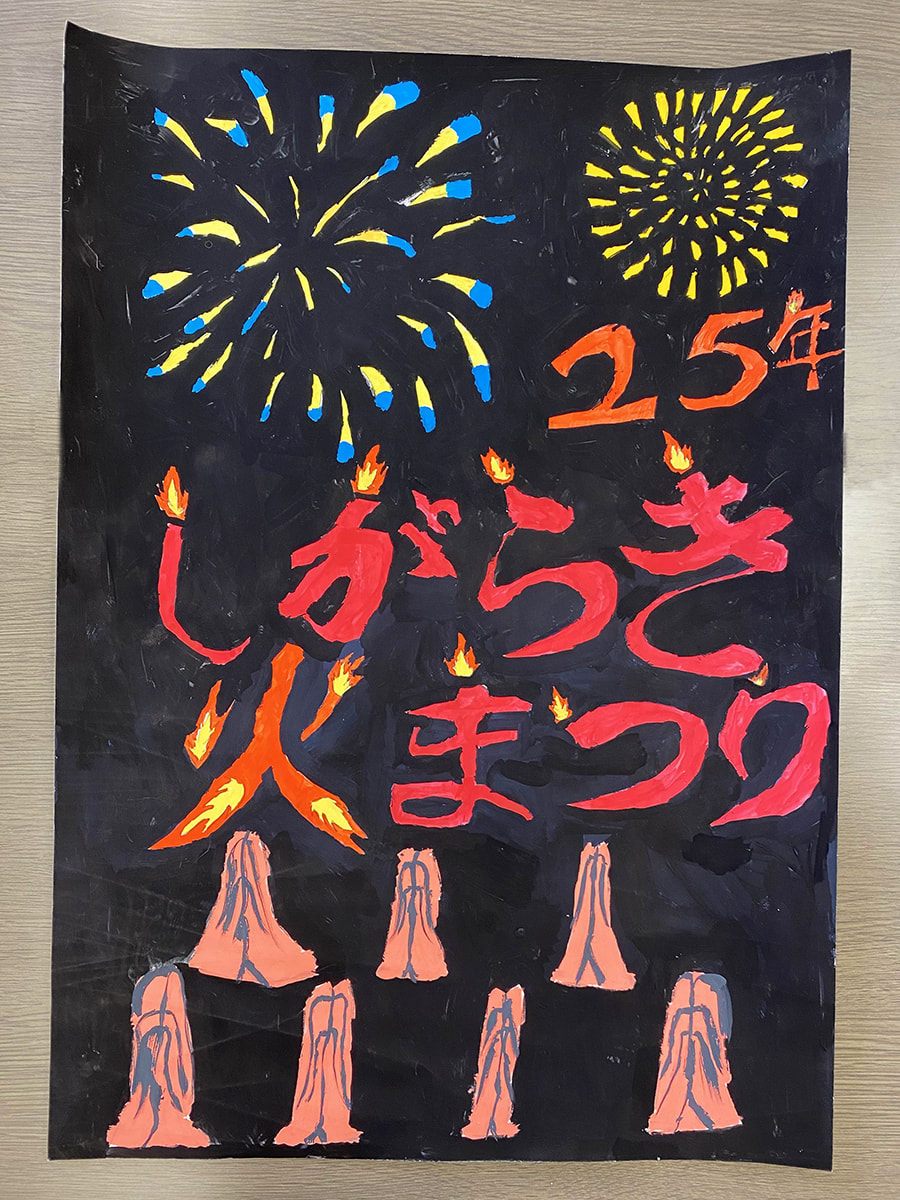 25年
しがらき
火まつり